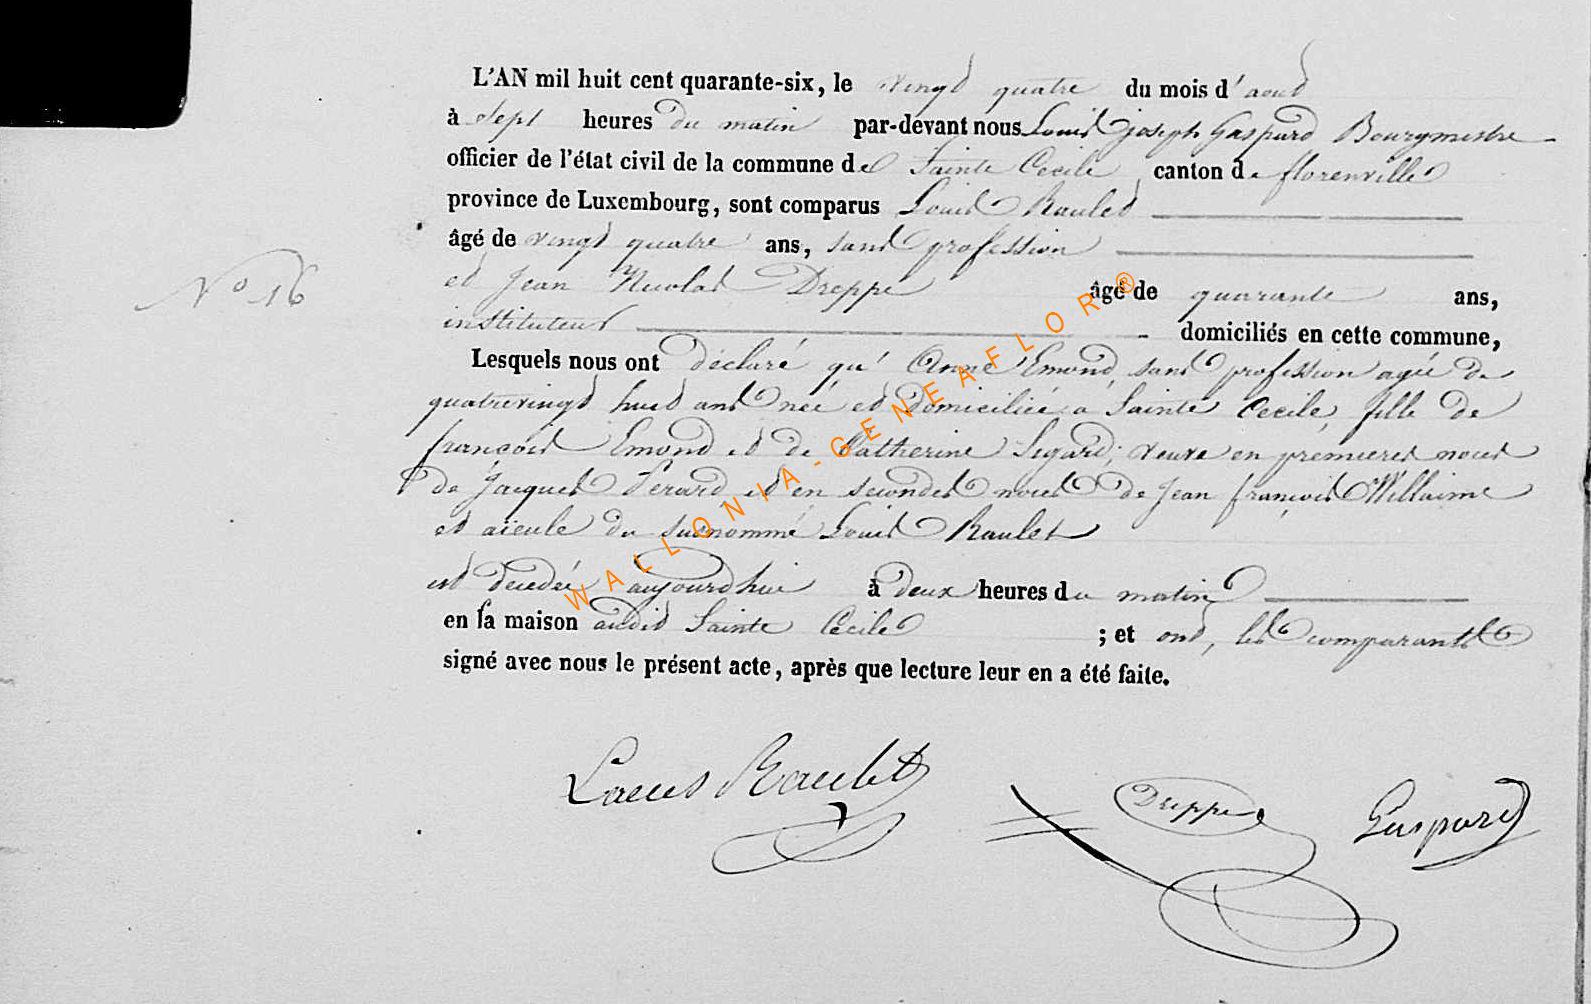 L'AN mil huit cent quarante-six, le vingt quatre du mois d'aout
à Sept heures du matin par-devant nous Louis joseph Gaspard Bourgmestre
officier de l'état civil de la commune de Sainte Cecile canton de florenville
province de Luxembourg, sont comparus Louis Raulet
âgé de vingt quatre ans, sans profession
et Jean Nicolas Dreppe âgé de quarante ans,
N° 16
instituteur domiciliés en cette commune,
Lesquels nous ont déclaré qu' Anne Emond, sans profession agée de
quatrevingt huit ans née et domiciliée a Sainte Cecile, fille de
françois Emond et de Catherine Sigard, veuve en premieres noces
de Jacques Perard et en secondes noces de Jean françois Willaime
et aieule du susnommé Louis Raulet
est decedée aujourdhui à deux heures du matin
en sa maison audit Sainte Cecile ; et ont, les comparants
signé avec nous le présent acte, après que lecture leur en a été faite.
Louis Raulet
Dreppe
Gaspard
WALLONIA-GENEAFLOR®